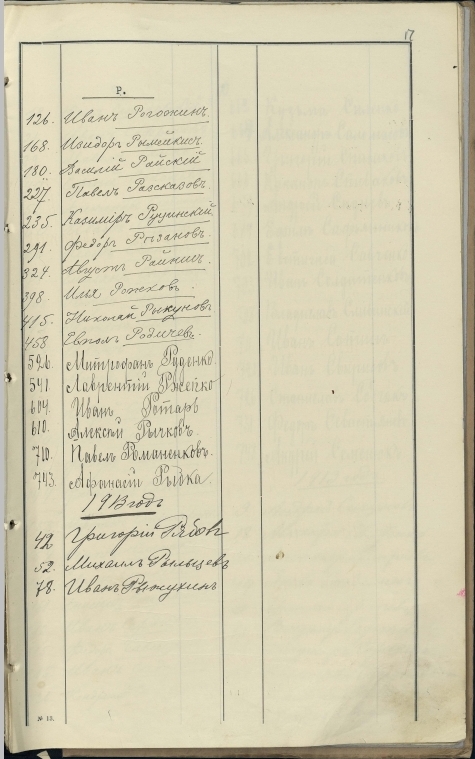 17
Р.
126. Иванъ Рогожинъ.
168. Изидоръ Рымейкисъ.
180. Василій Райскій
227. Павелъ Разсказовъ.
235. Казиміръ Руцинскій.
291. Федоръ Рызановъ.
324. Августъ Райнисъ.
398. Илья Рожковъ.
415. Николай Рыкуновъ
458. Родичевъ.
526. Митрофанъ Руденко.
541 Лаврентій Ржейко
604. Иванъ Ротаръ
610. Алексѣй Рычковъ.
710. Павелъ Романенковъ.
743. Афанасій Рыбка.
1913 годъ
42 Григорій Рябовъ
52. Михаилъ Рыльцевъ
78. Иванъ Рыжухинъ
№ 13.